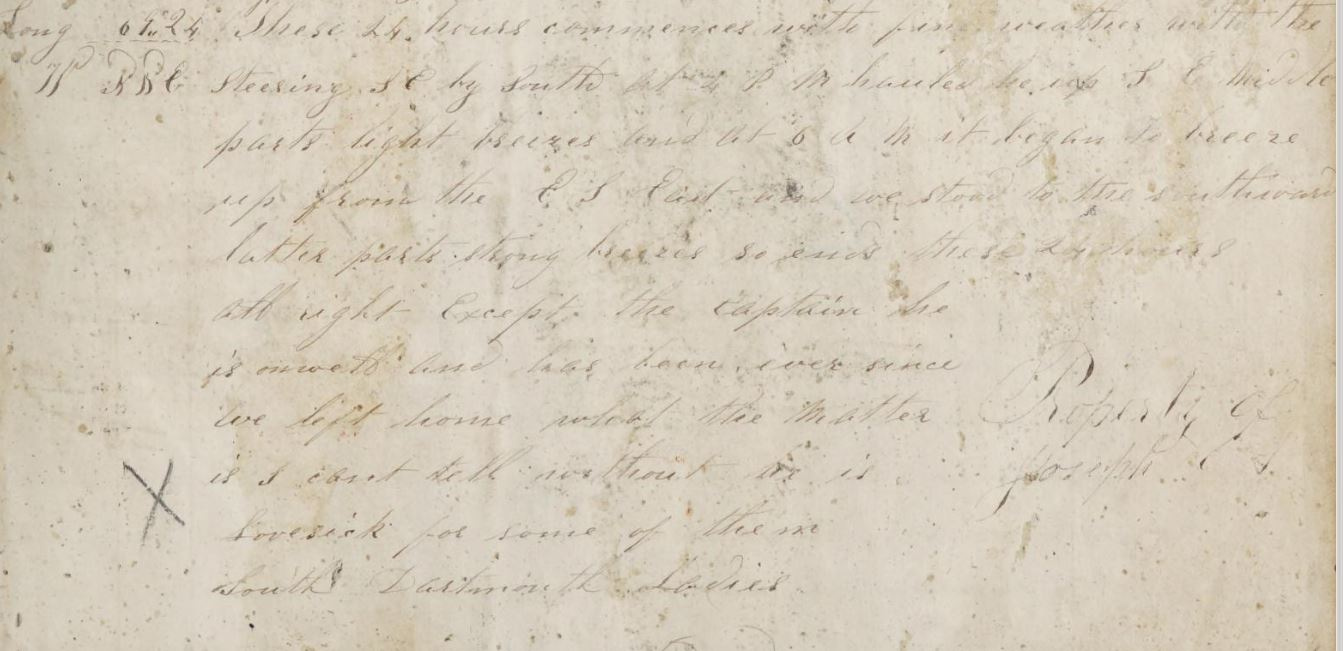 Long 64.24 These 24 hours commences with fine weather with the
Steering S E by South at 4 P M hauled he up S E Middle
parts light breezes and at 6 A M it began to breeze
up from the E S East and we stood to the southward
latter parts strong breezes so ends these 24 hours
all right Except the Captain he
is onwell and has been ever since
we left home what the matter
Property of
is I cant tell without he is
Joseph
Lovesick for some of them
South Dartmouth Ladies